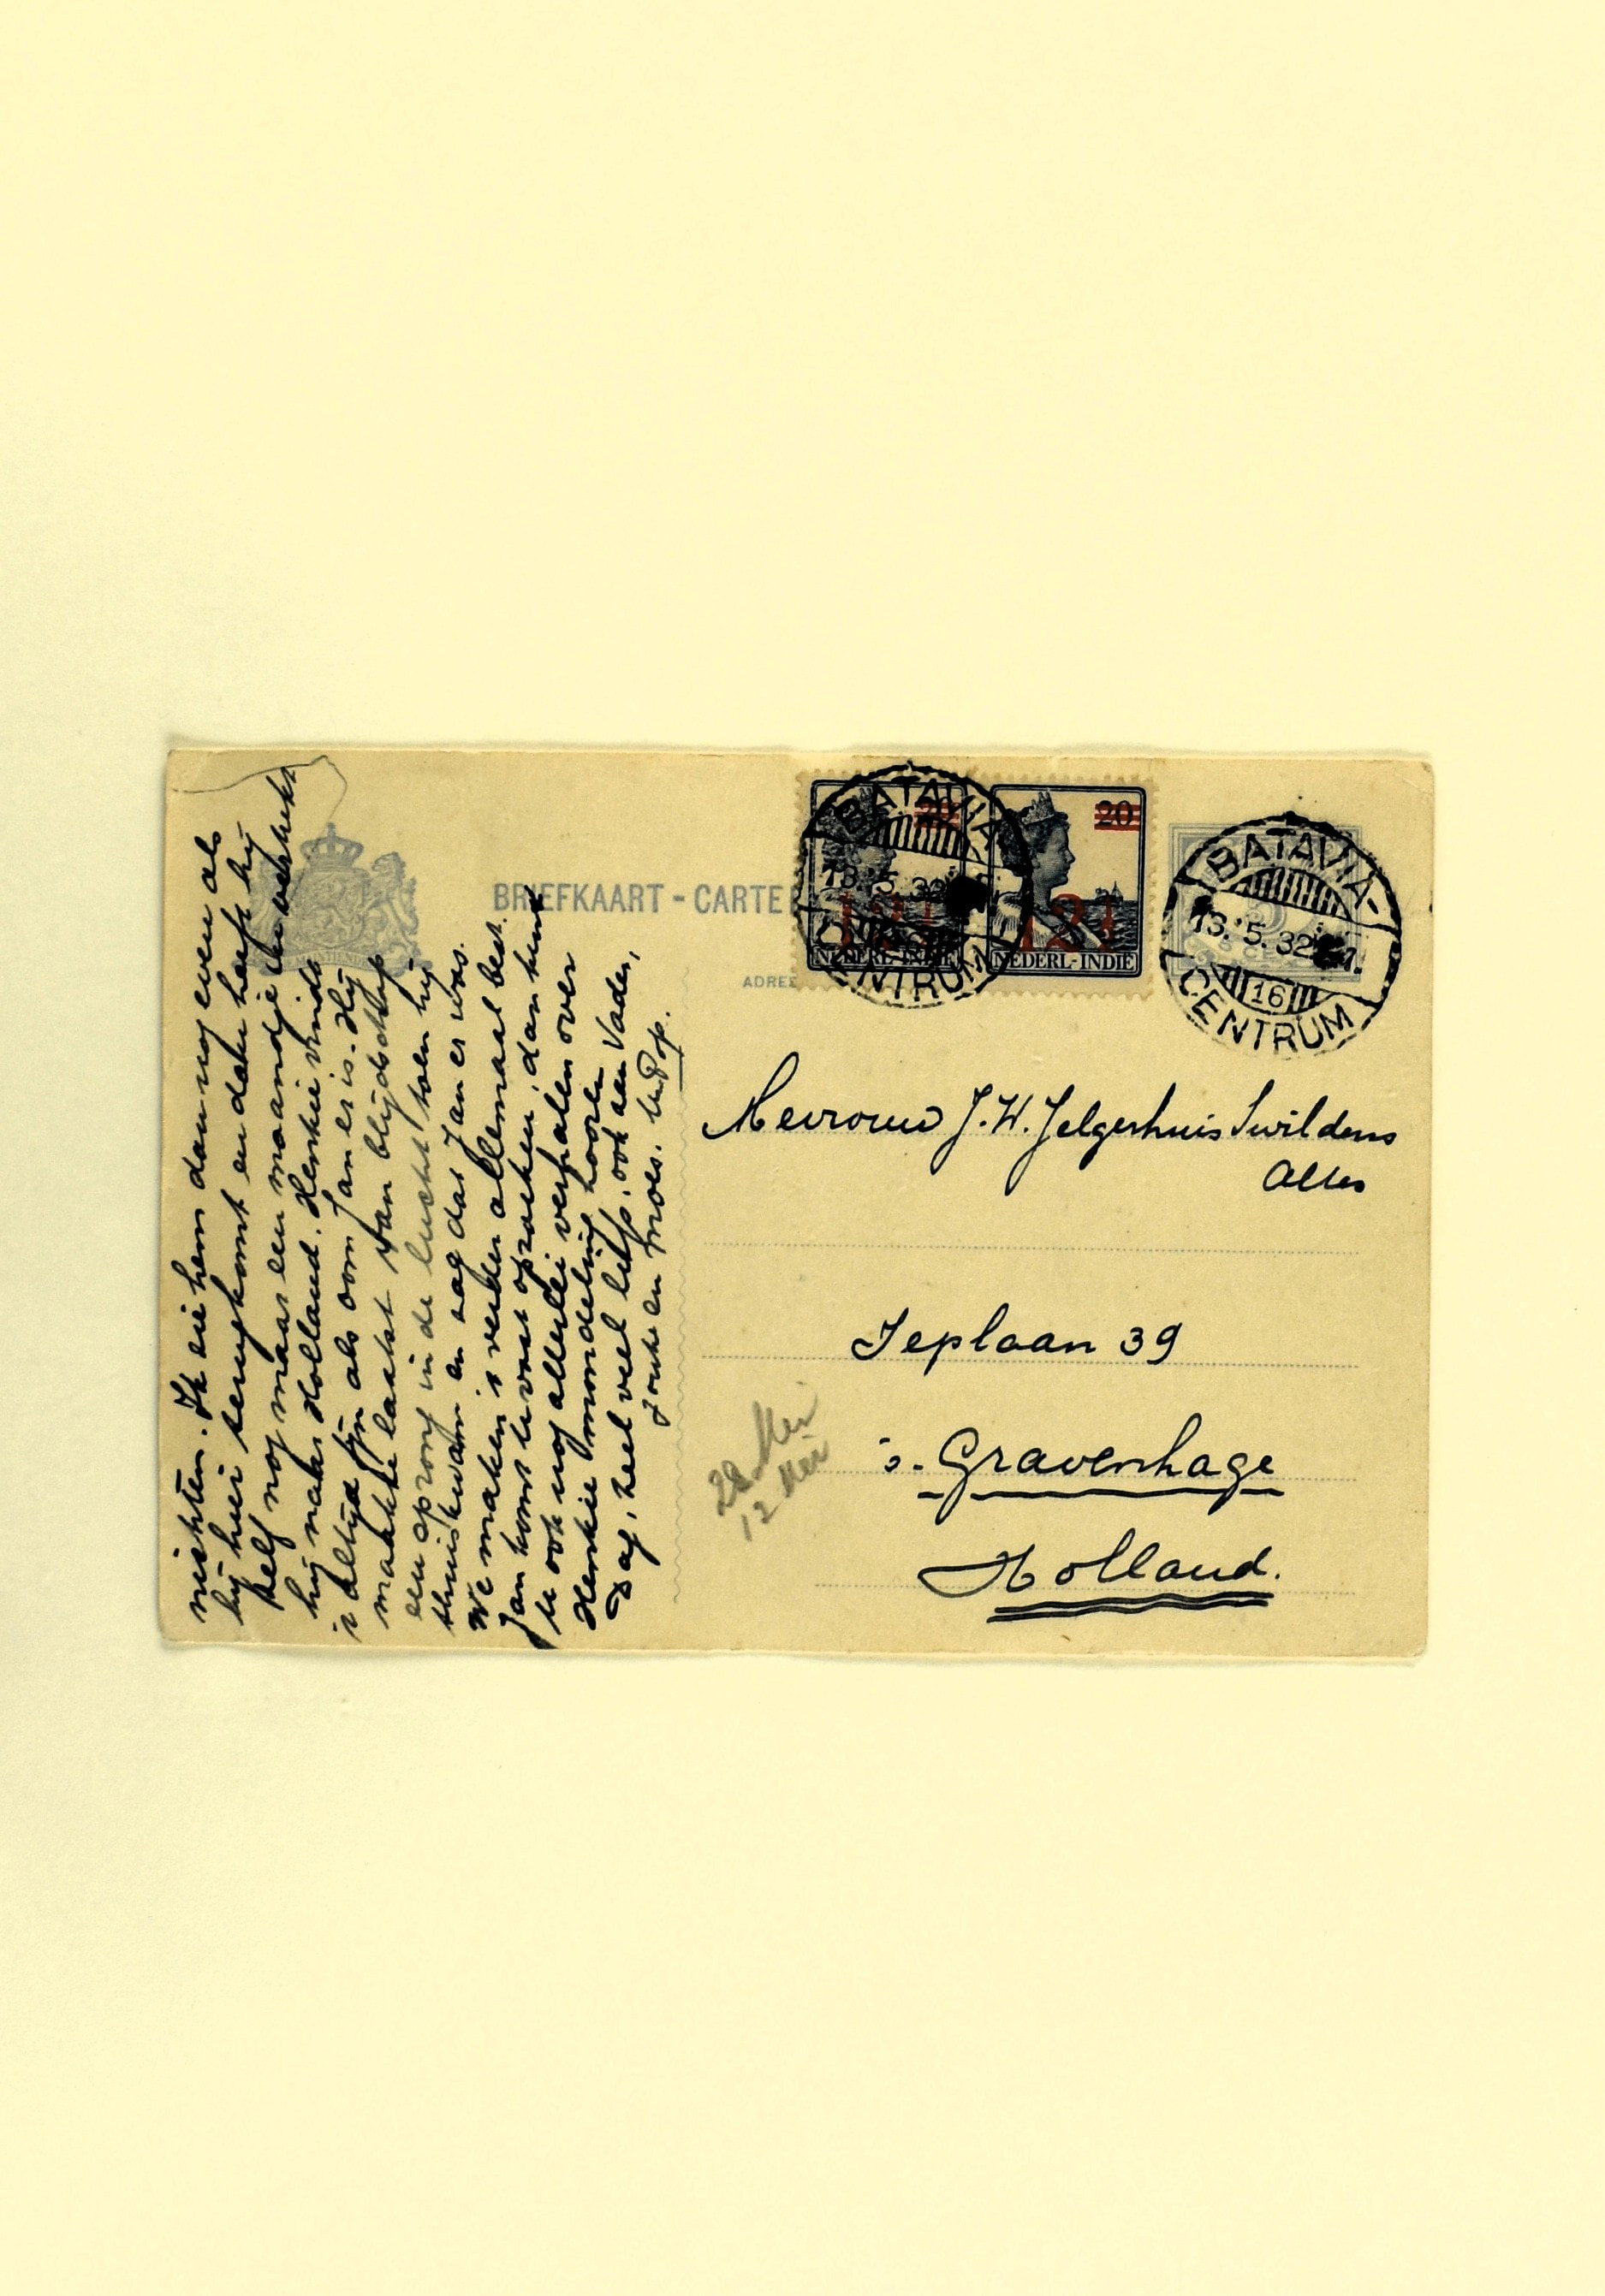 michten. Ik zie hem dan nog even als
hij hier terugkomt en dan heeft hij
zelf nog maar een maandje en vertrekt
hij naar Holland. Henkie vindt
't altijd fijn als oom Jan er is. Hij
maakte laatst van blijdschap
een sprong in de lucht toen hij
thuiskwam en zag dat Jan er was.
We maken 't verder allemaal best.
Jan komt U vast opzoeken, dan kunt
U ook nog allerlei verhalen over
Henkie mondeling hooren
Dag, heel veel liefs, ook aan Vader,
Zoute en Moes. Uw Pop.
BRIEFKAART - CARTE
ADRES
20
NEDERL-INDIË
20
12½
NEDERL-INDIË
BATAVIA-
13.5.32
CENTRUM
BATAVIA-
13.5.32
16
CENTRUM
Mevrouw J.W. Jelgerhuis Swildens
Alles
Ieplaan 39
's-Gravenhage
Holland.
28 Mei
12 Mei